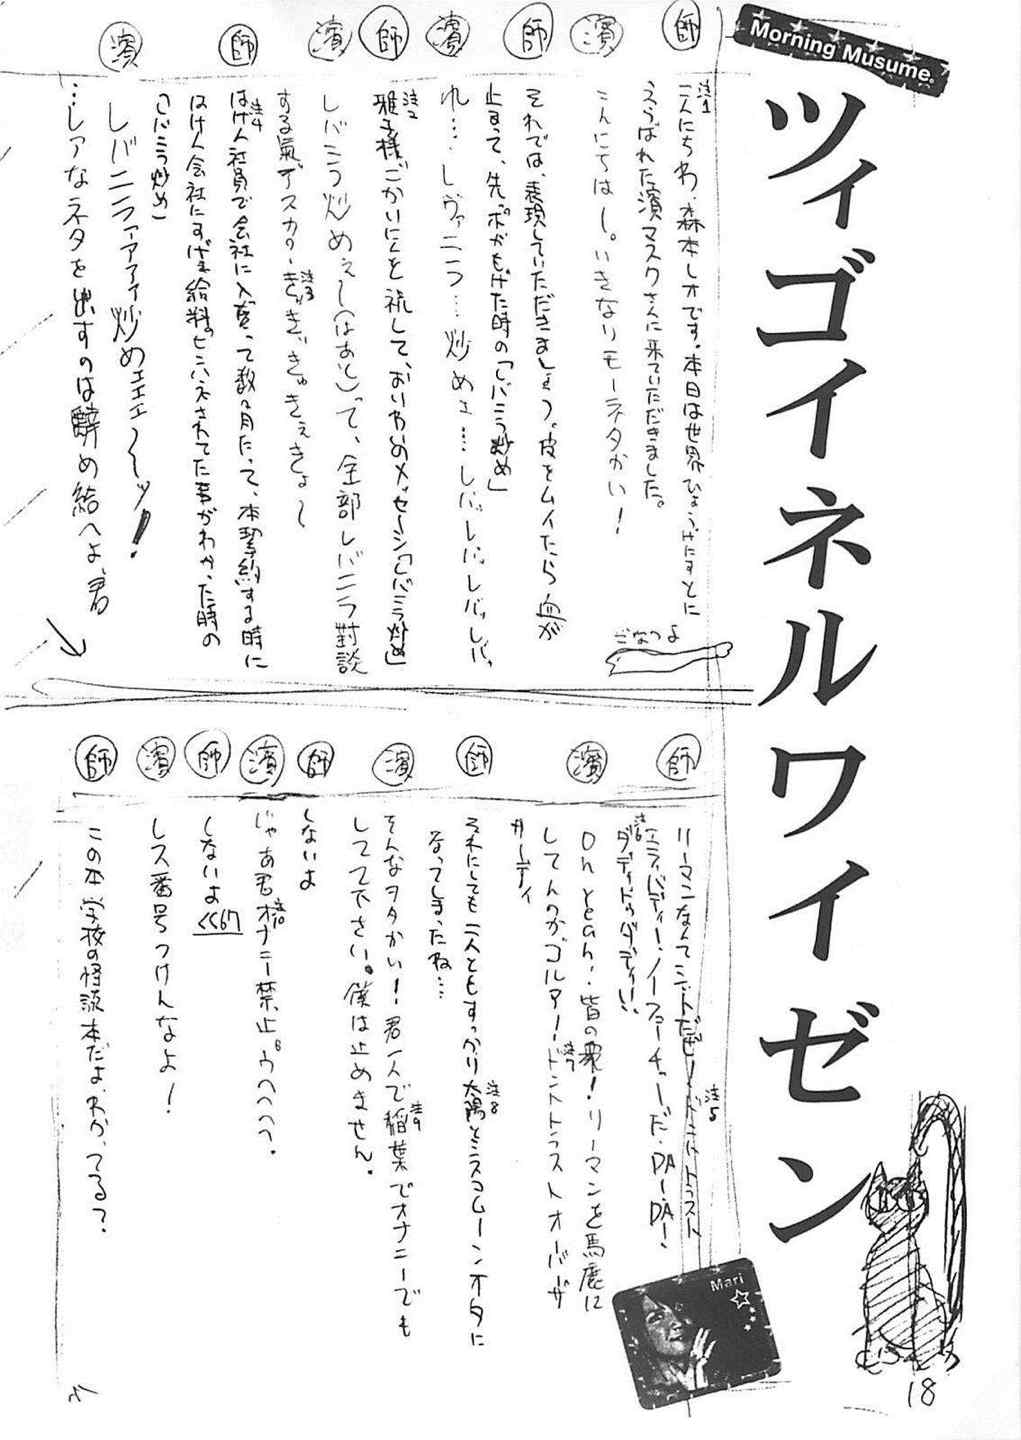 Morning Musume。
ツィゴイネルワイゼン
師
注1
こんにちわ、森本レオです。本日は世界ひょうげにすとに
えらばれた濱マスクさんに来ていただきました。
濱
こんにちはし。いきなりモーネタかい！
師
それでは、表現していただきましょう。皮をムイたら血が
止まって、先ッポがもげた時の「レバニラ炒め」
濱
れ…レヴァニラ…炒めェ…レバッレバッレバッレバッ
師
注2
雅子様ごかいにんを祝して、おいわいのメッセージ「レバニラ炒め」
濱
レバニラ炒めぇ〜(はあと)って、全部レバニラ対談
する氣デスカ
注3
きょ〜
師
注4
はけん社員で会社に入って数ヶ月たって、本契約する時に
はけん会社にすげー給料ピンハネされてた事がわかった時の
「レバニラ炒め」
濱
レバニラァァァィ炒めェェェ〜〜ッ！
…レアなネタを出すのは
君
ごなつよ
師
リーマンなんてシットだぜ！ドントトラスト
注5
エニィバディー、ノーフューチャーだ、DA・DA！
注6
ダディドゥダディ!!
濱
Oh yeah・皆の衆！リーマンを馬鹿に
してんのかゴルァ！ドントトラストオーバーサ
注7
ーティ
師
それにしても二人ともすっかり太陽とシスコムーンオタに
注8
なってしまったね…
濱
そんなヲタかい！君一人で稲葉でオナニーでも
注9
してて下さい。僕は止めません。
師
しないよ
濱
じゃあ君オナニー禁止ウヘヘヘ。
注10
師
しないよ <<67
濱
レス番号つけんなよ！
師
この本学校の怪談本だよ、わかってる？
Mari
18